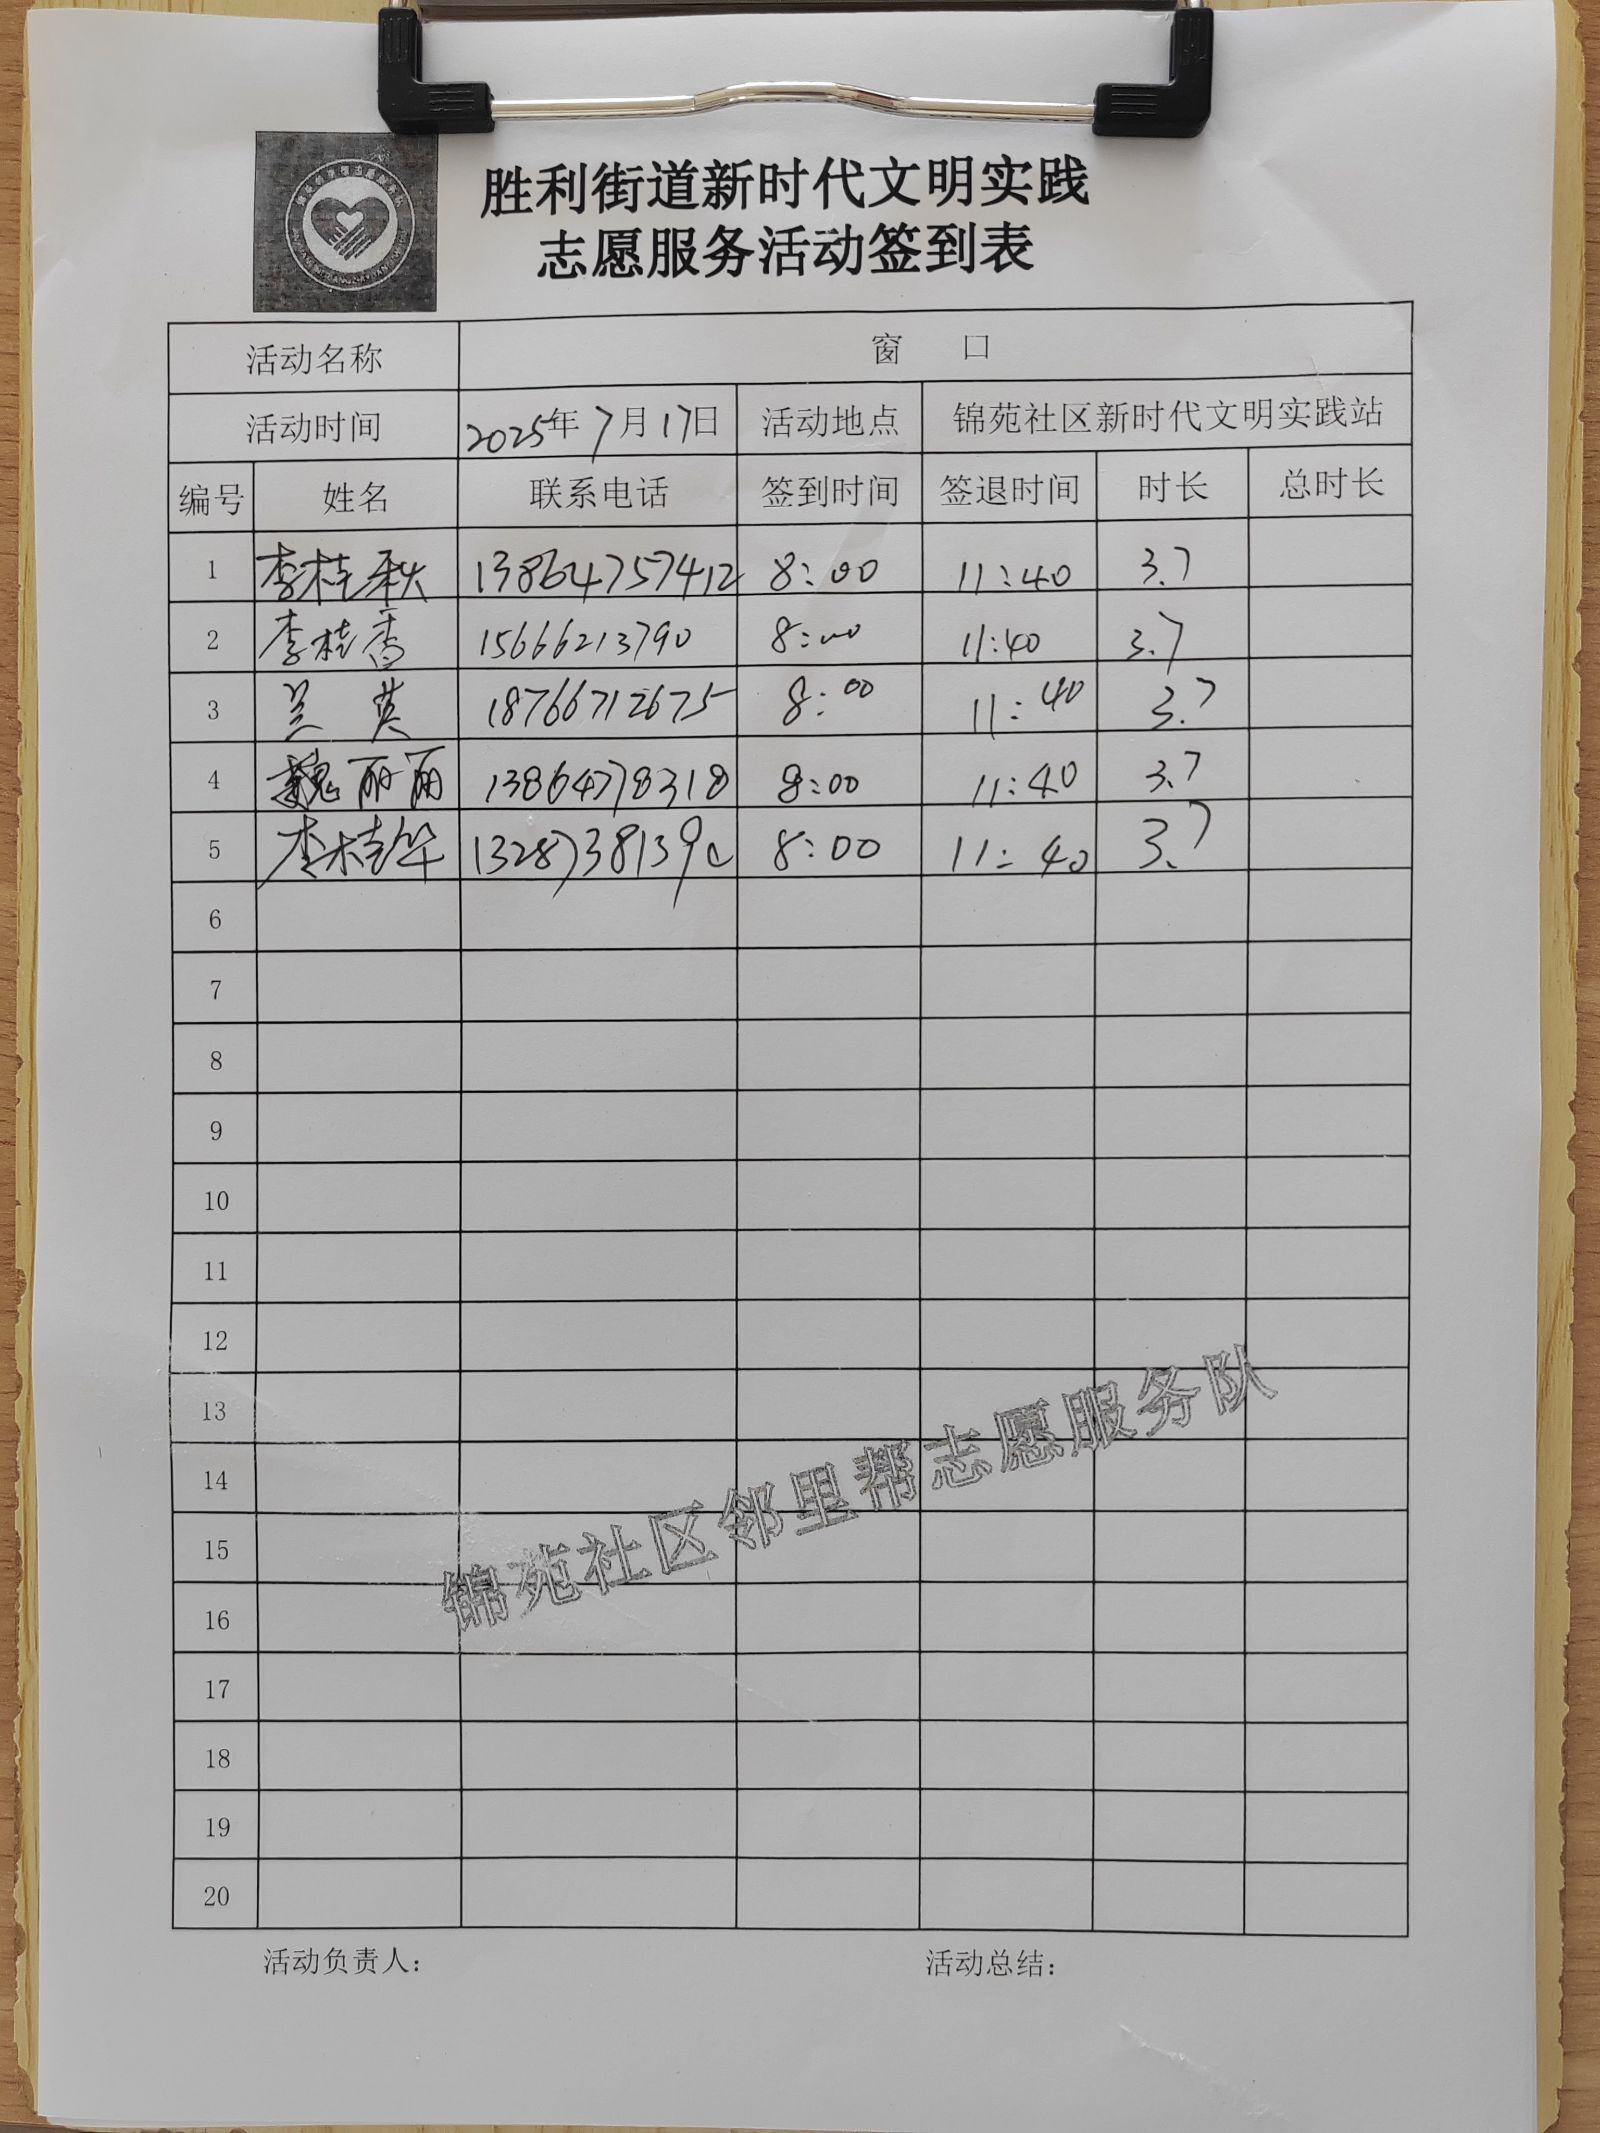 胜利街道新时代文明实践
志愿服务活动签到表
活动名称 窗 口
活动时间 2025年7月17日 活动地点 锦苑社区新时代文明实践站
编号 姓名 联系电话 签到时间 签退时间 时长 总时长
1 李桂秋 13864757412 8:00 11:40 3.7
2 李桂香 15666213790 8:00 11:40 3.7
3 兰英 18766712675 8:00 11:40 3.7
4 魏丽丽 13864778318 8:00 11:40 3.7
5 李桂华 13287381390 8:00 11:40 3.7
6
7
8
9
10
11
12
13
14
15
16
17
18
19
20
锦苑社区邻里帮志愿服务队
活动负责人： 活动总结：